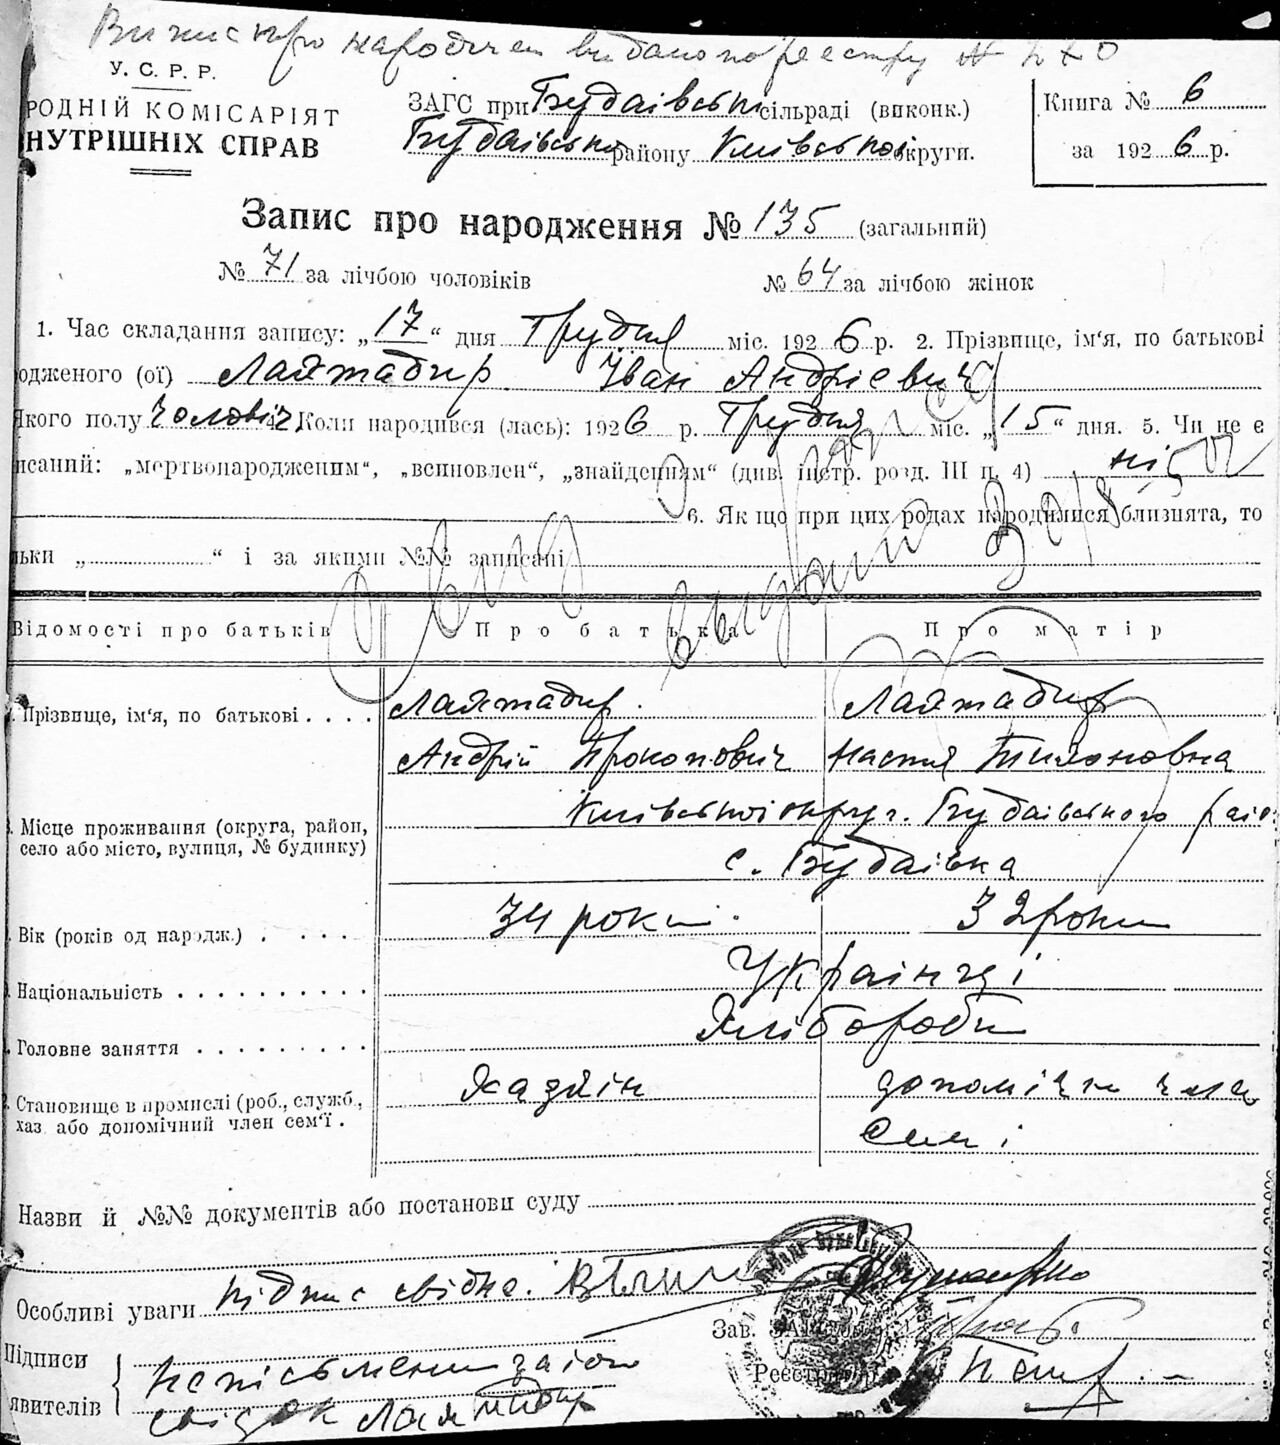 Випис про народжен видано по реестру №
У. С. Р. Р.
РОДНІЙ КОМІСАРІЯТ
НУТРІШНІХ СПРАВ
ЗАГС при Будаівські сільраді (виконк.)
Будаівсько району Київськоі округи.
Книга № 6
за 1926 р.
Запис про народження № 135 (загальний)
№ 71 за лічбою чоловіків № 64 за лічбою жінок
1. Час складання запису: „17“ дня Грудня міс. 1926 р. 2. Прізвище, ім‘я, по батькові
одженого (ої) Лаяжтабир Іван Андрієвич
Якого полу Чоловіч 4. Коли народився (лась): 1926 р. Грудня міс. „15“ дня. 5. Чи це є
исаний: „мертвонародженим“, „всиновлен“, „знайденням“ (див. інстр. розд. III п. 4) ні
6. Як що при цих родах народилися близнята, то
льки „ “ і за якими №№ записані
Відомості про батьків Про батька Про матір
Прізвище, ім‘я, по батькові . . . .
Андрій Прокопович Настя Тихоновна
Місце проживання (округа, район,
село або місто, вулиця, № будинку)
Київськоі округ. Будаівського раіо
с. Будаівка
Вік (років од народж.) . . . . 34 роки 32 роки
Національність . . . . . . . . . . Украінці
Головне заняття . . . . . . . . . Хлібороби
Становище в промислі (роб., служб.,
хаз. або допомічний член сем‘ї .
Хазяін допомічн член
семі
Назви й №№ документів або постанови суду
Особливі уваги підпис свідка.
Зав. ЗАГС
Реєстратор
Підписи
явителів
неписьмени за іх
свідок